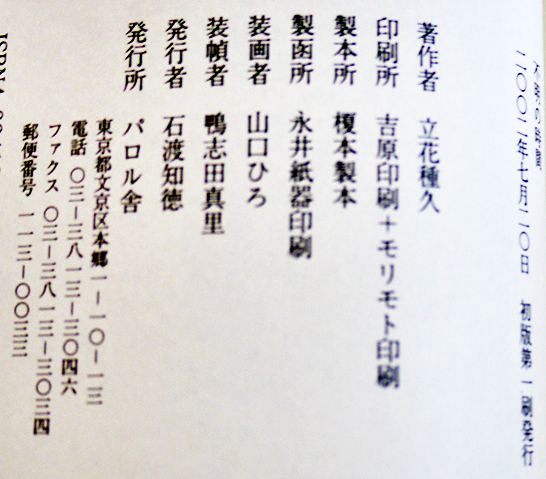 の時間
二〇〇二年七月二〇日 初版第一刷発行
著作者 立花種久
印刷所 吉原印刷+モリモト印刷
製本所 榎本製本
製函所 永井紙器印刷
装画者 山口ひろ
装幀者 鴨志田真里
発行者 石渡知徳
発行所 パロル舎
東京都文京区本郷一−一〇−一三
電話 〇三−三八一三−三〇四六
ファクス 〇三−三八一三−三〇三四
郵便番号 一一三−〇〇三三